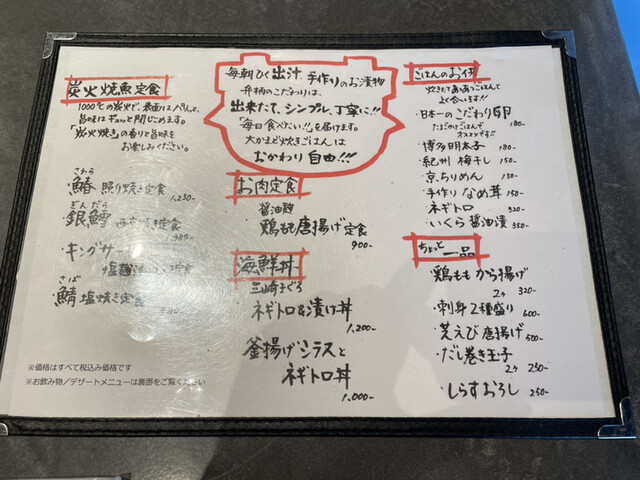 炭火焼魚定食
1000℃の炭火で、表面はパリッと、
旨味はギュッと閉じこめます。
「炭火焼き」の香りと旨味を
お楽しみください。
さわら
・鰆 照り焼き定食
1,250-
ぎんだら
・銀鱈 西京焼き定食
・キングサー
塩麹 定食
さば
・鯖 塩焼き定食
※価格はすべて税込み価格です
※お飲み物／デザートメニューは裏面をご覧ください
毎朝ひく出汁、手作りのお漬物
弁柄のこだわりは、
出来たて、シンプル、丁寧に!!
「毎日食べたい!!」を届けます。
大かまど炊きごはんは
おかわり自由!!!
お肉定食
醤油麹
・鶏もも唐揚げ定食
900-
海鮮丼
・三崎まぐろ
ネギトロ&漬け丼
1,200-
・釜揚げシラスと
ネギトロ丼
1,000-
ごはんのお供
炊きたてあつあつごはんで
よく合います!!
・日本一のこだわり卵
たまごかけごはんで
オススメです!!
180-
・博多明太子 180-
・紀州 梅干し 150-
・京ちりめん 150-
・手作り なめ茸 150-
・ネギトロ 320-
・いくら醤油漬 350-
ちょっと一品
・鶏もも から揚げ
2ヶ 320-
・刺身2種盛り 600-
・芝えび唐揚げ 500-
・だし巻き玉子
2ヶ 250-
・しらすおろし 250-